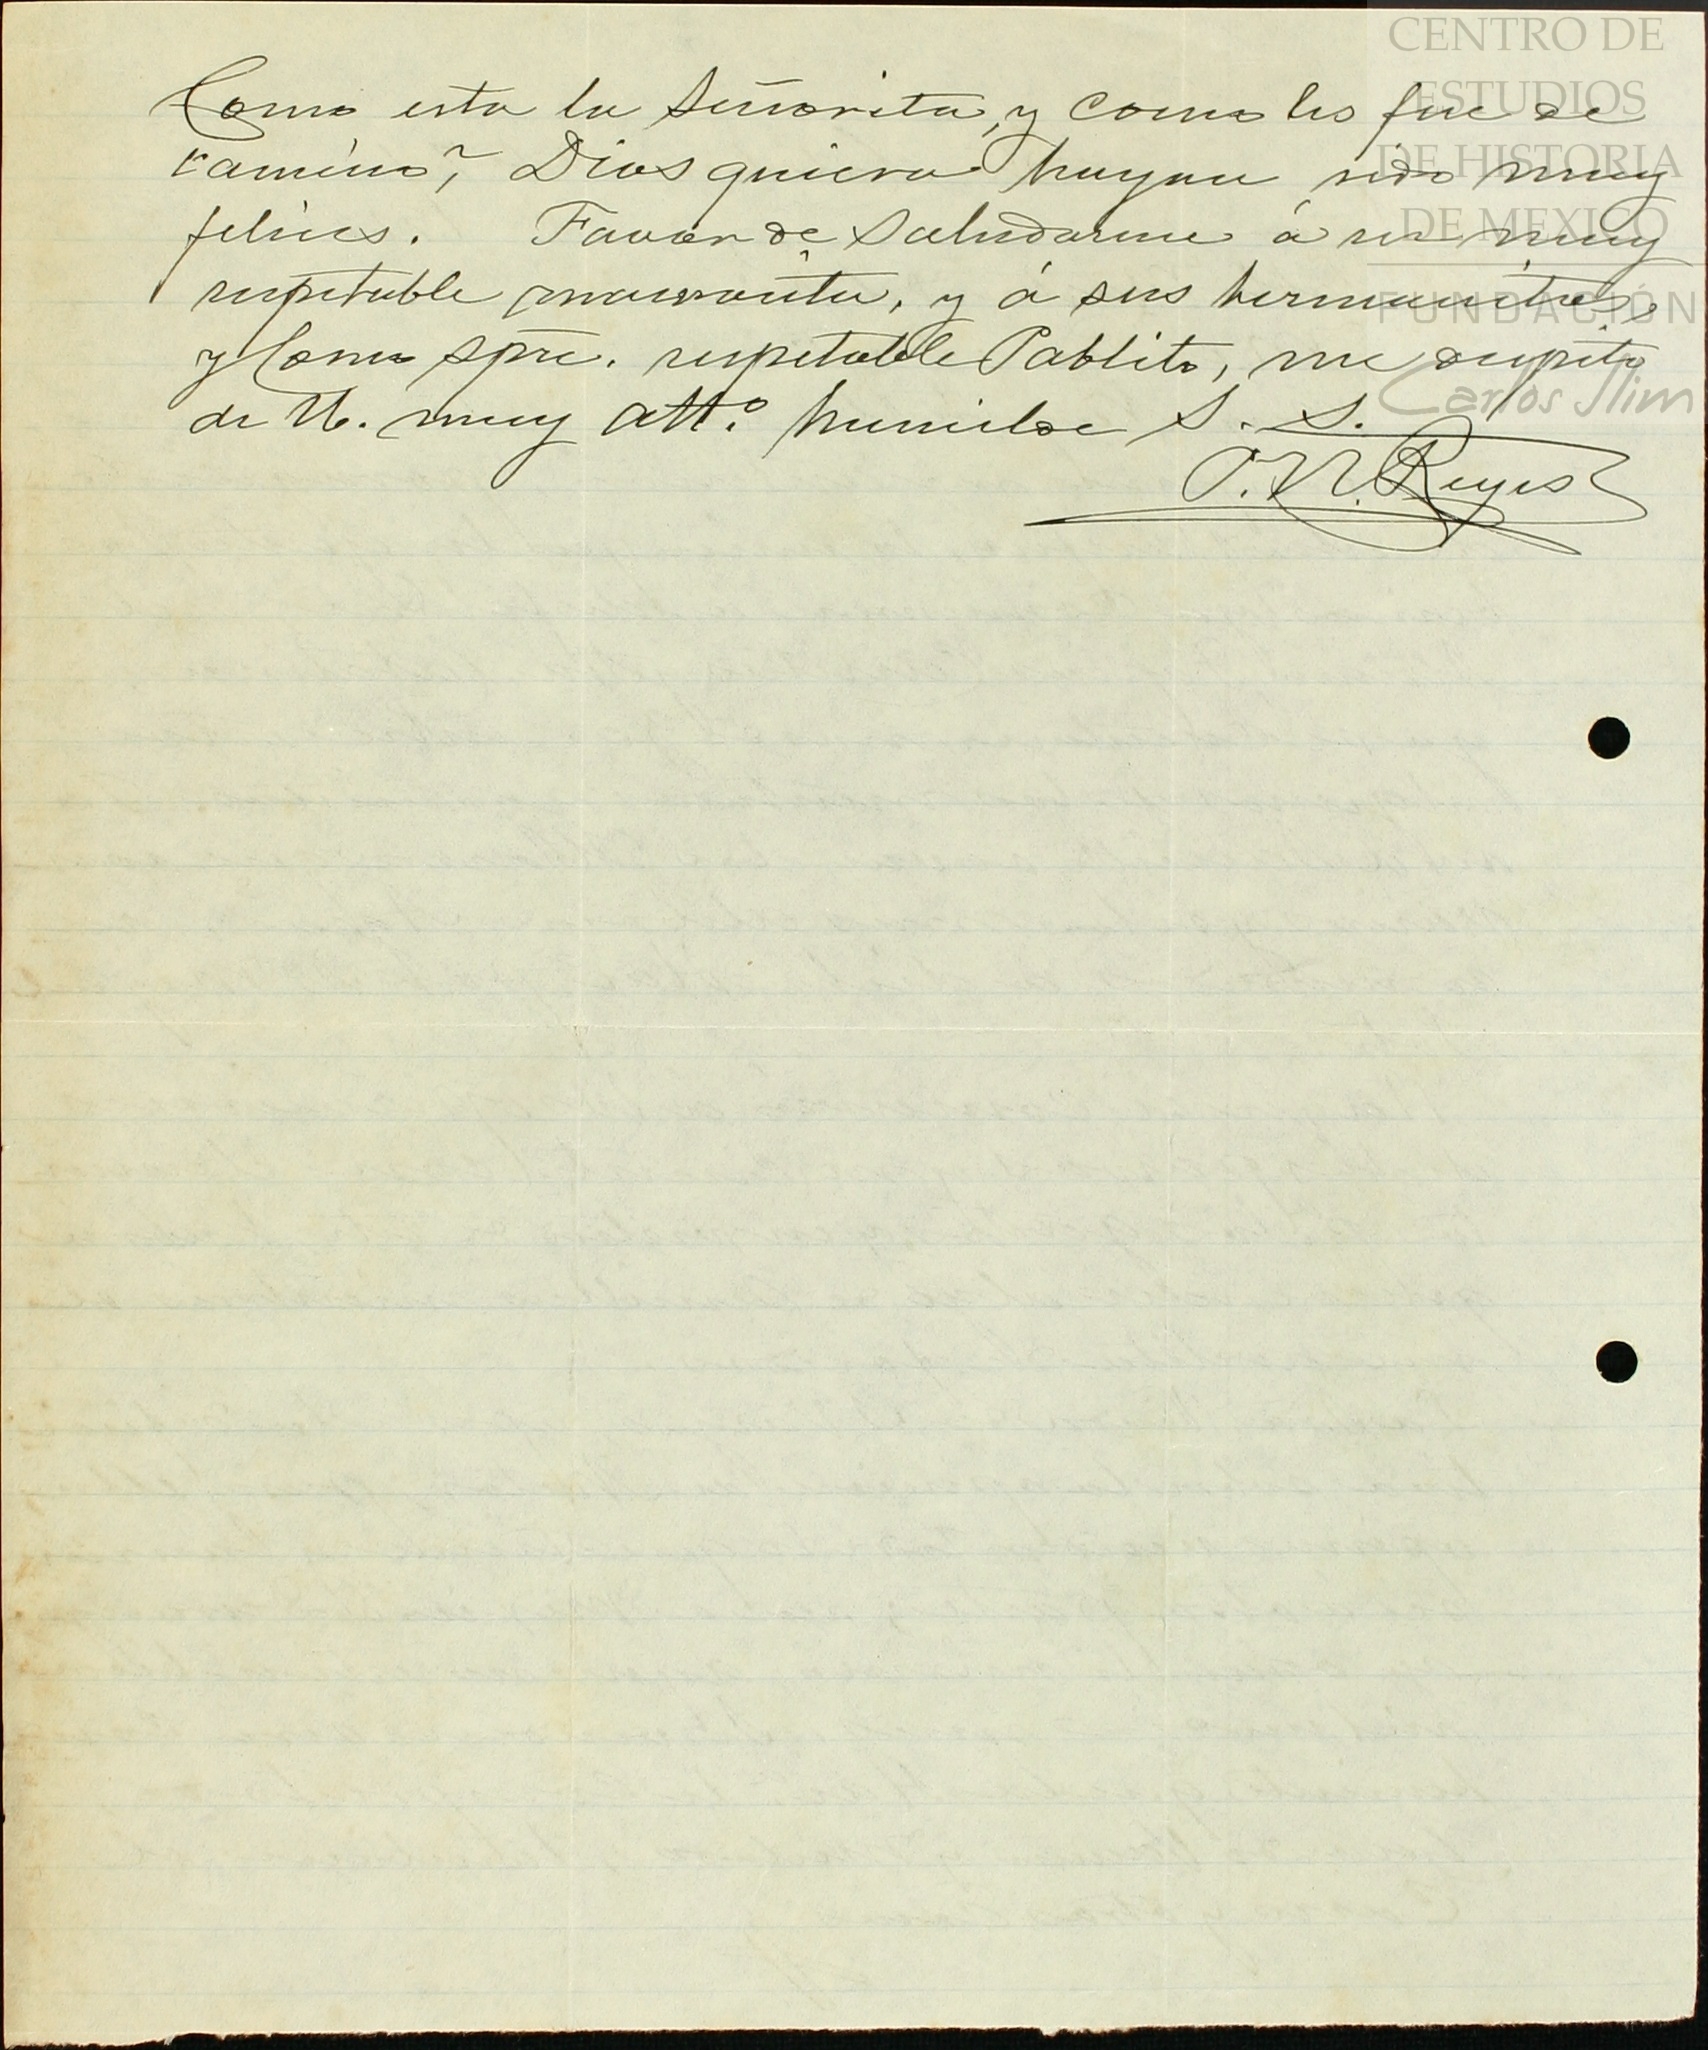 Como esta la Señorita, y como les fue de
camino? Dios quiera hayan sido muy
felices. Favor de saludarme á su muy
respetable mamacita, y á sus hermanitas,
y Como spre. respetable Pablito, me despito
de U. muy att.º humilde S. S.
P. N. Reyes
CENTRO DE
ESTUDIOS
DE HISTORIA
DE MEXICO
FUNDACIÓN
Carlos Slim